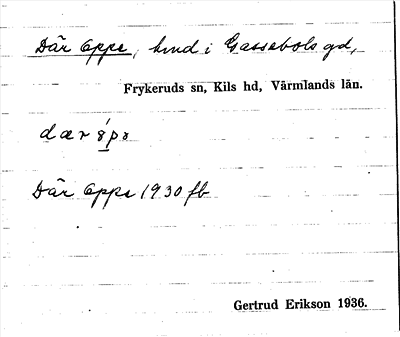 Där Oppe, hmd i Gassebols gd,
Frykeruds sn, Kils hd, Värmlands län.
Där Oppe 1930 fb
Gertrud Erikson 1936.